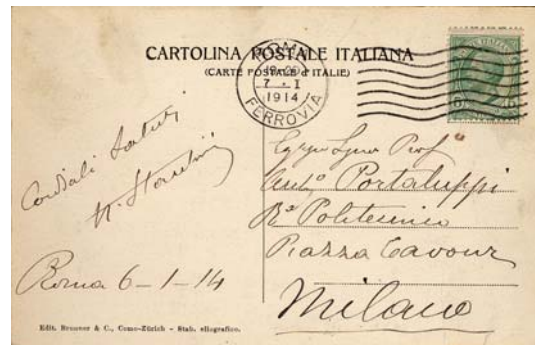 CARTOLINA POSTALE ITALIANA
(CARTE POSTALE d'ITALIE)
ROMA
19-20
7·I
1914
FERROVIA
Cordiali Saluti
Roma 6-1-14
Egrgio Signor Prof
Portaluppi
Ro Politecnico
Piazza Cavour
Milano
Edit. Brunner & C., Como-Zürich - Stab. eliografico.